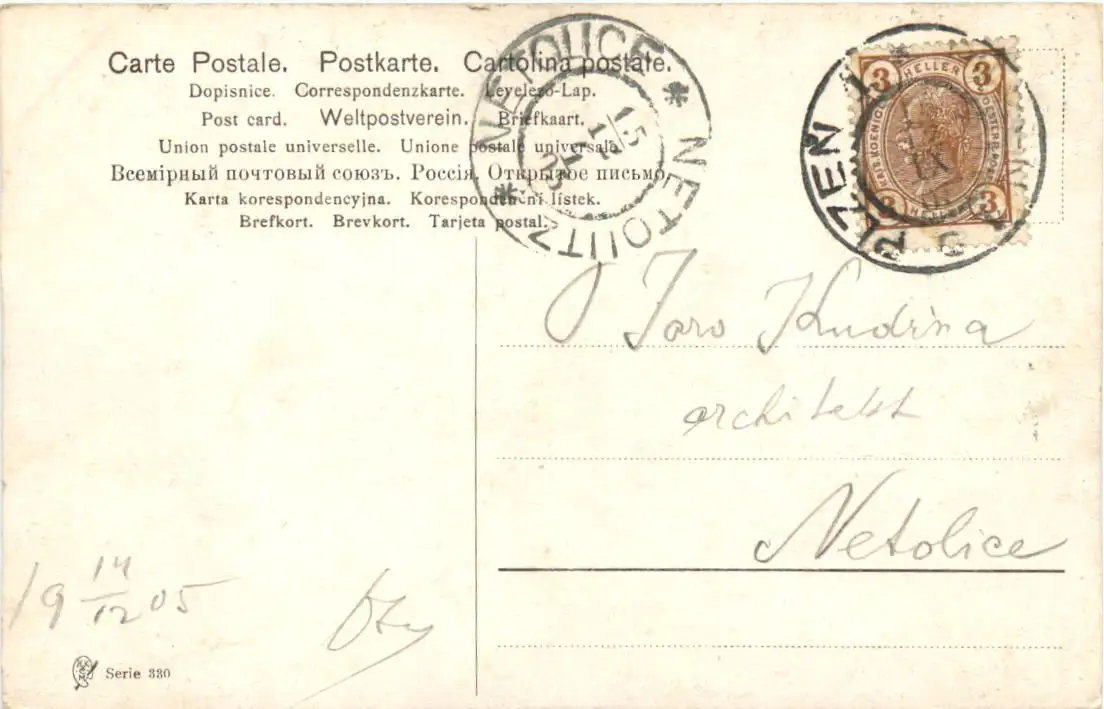 Carte Postale. Postkarte. Cartolina postale.
Dopisnice. Correspondenzkarte. Levelező-Lap.
Post card. Weltpostverein. Briefkaart.
Union postale universelle. Unione postale universale.
Всемірный почтовый союзъ. Россія. Открытое письмо.
Karta korespondencyjna. Korespondenční lístek.
Brefkort. Brevkort. Tarjeta postal.
NETOLICE * NETOLITZ *
15
12
PLZEŇ
IX
3 HELLER 3
3 HELLER 3
Jaro Kudrna
architekt
Netolice
19 14/12 05
Serie 330